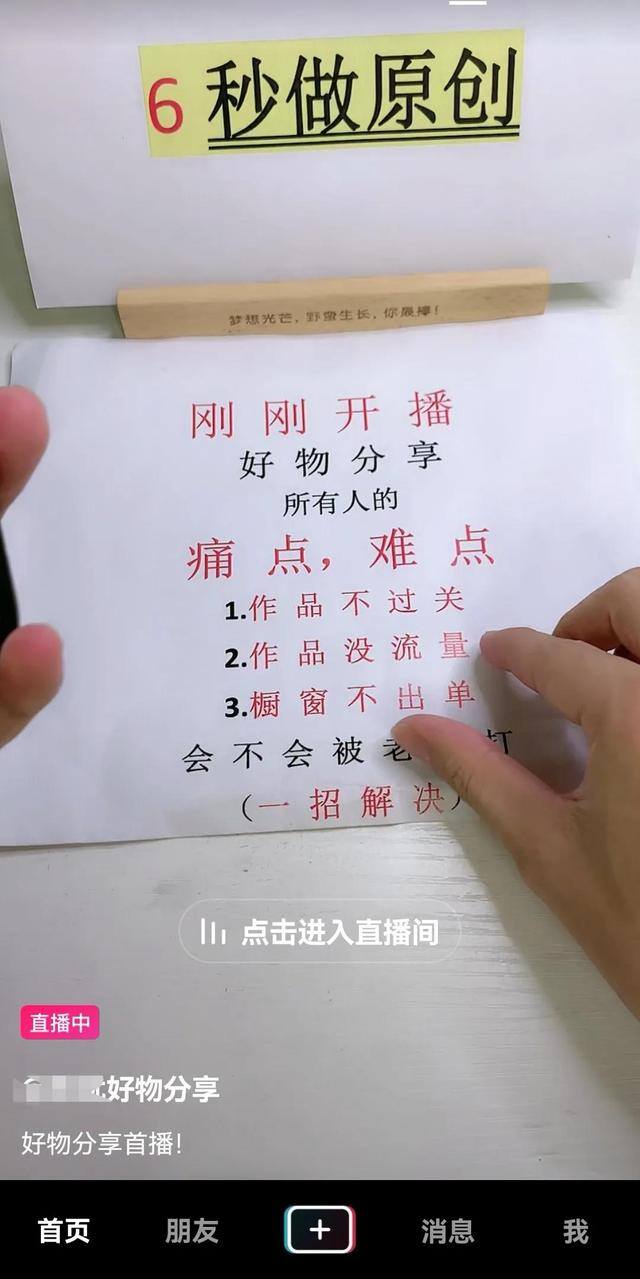 6秒做原创
梦想光芒，野蛮生长，你最棒！
刚刚开播
好物分享
所有人的
痛点，难点
1.作品不过关
2.作品没流量
3.橱窗不出单
会不会被老 打
（一招解决）
点击进入直播间
直播中
好物分享
好物分享首播！
首页 朋友 消息 我